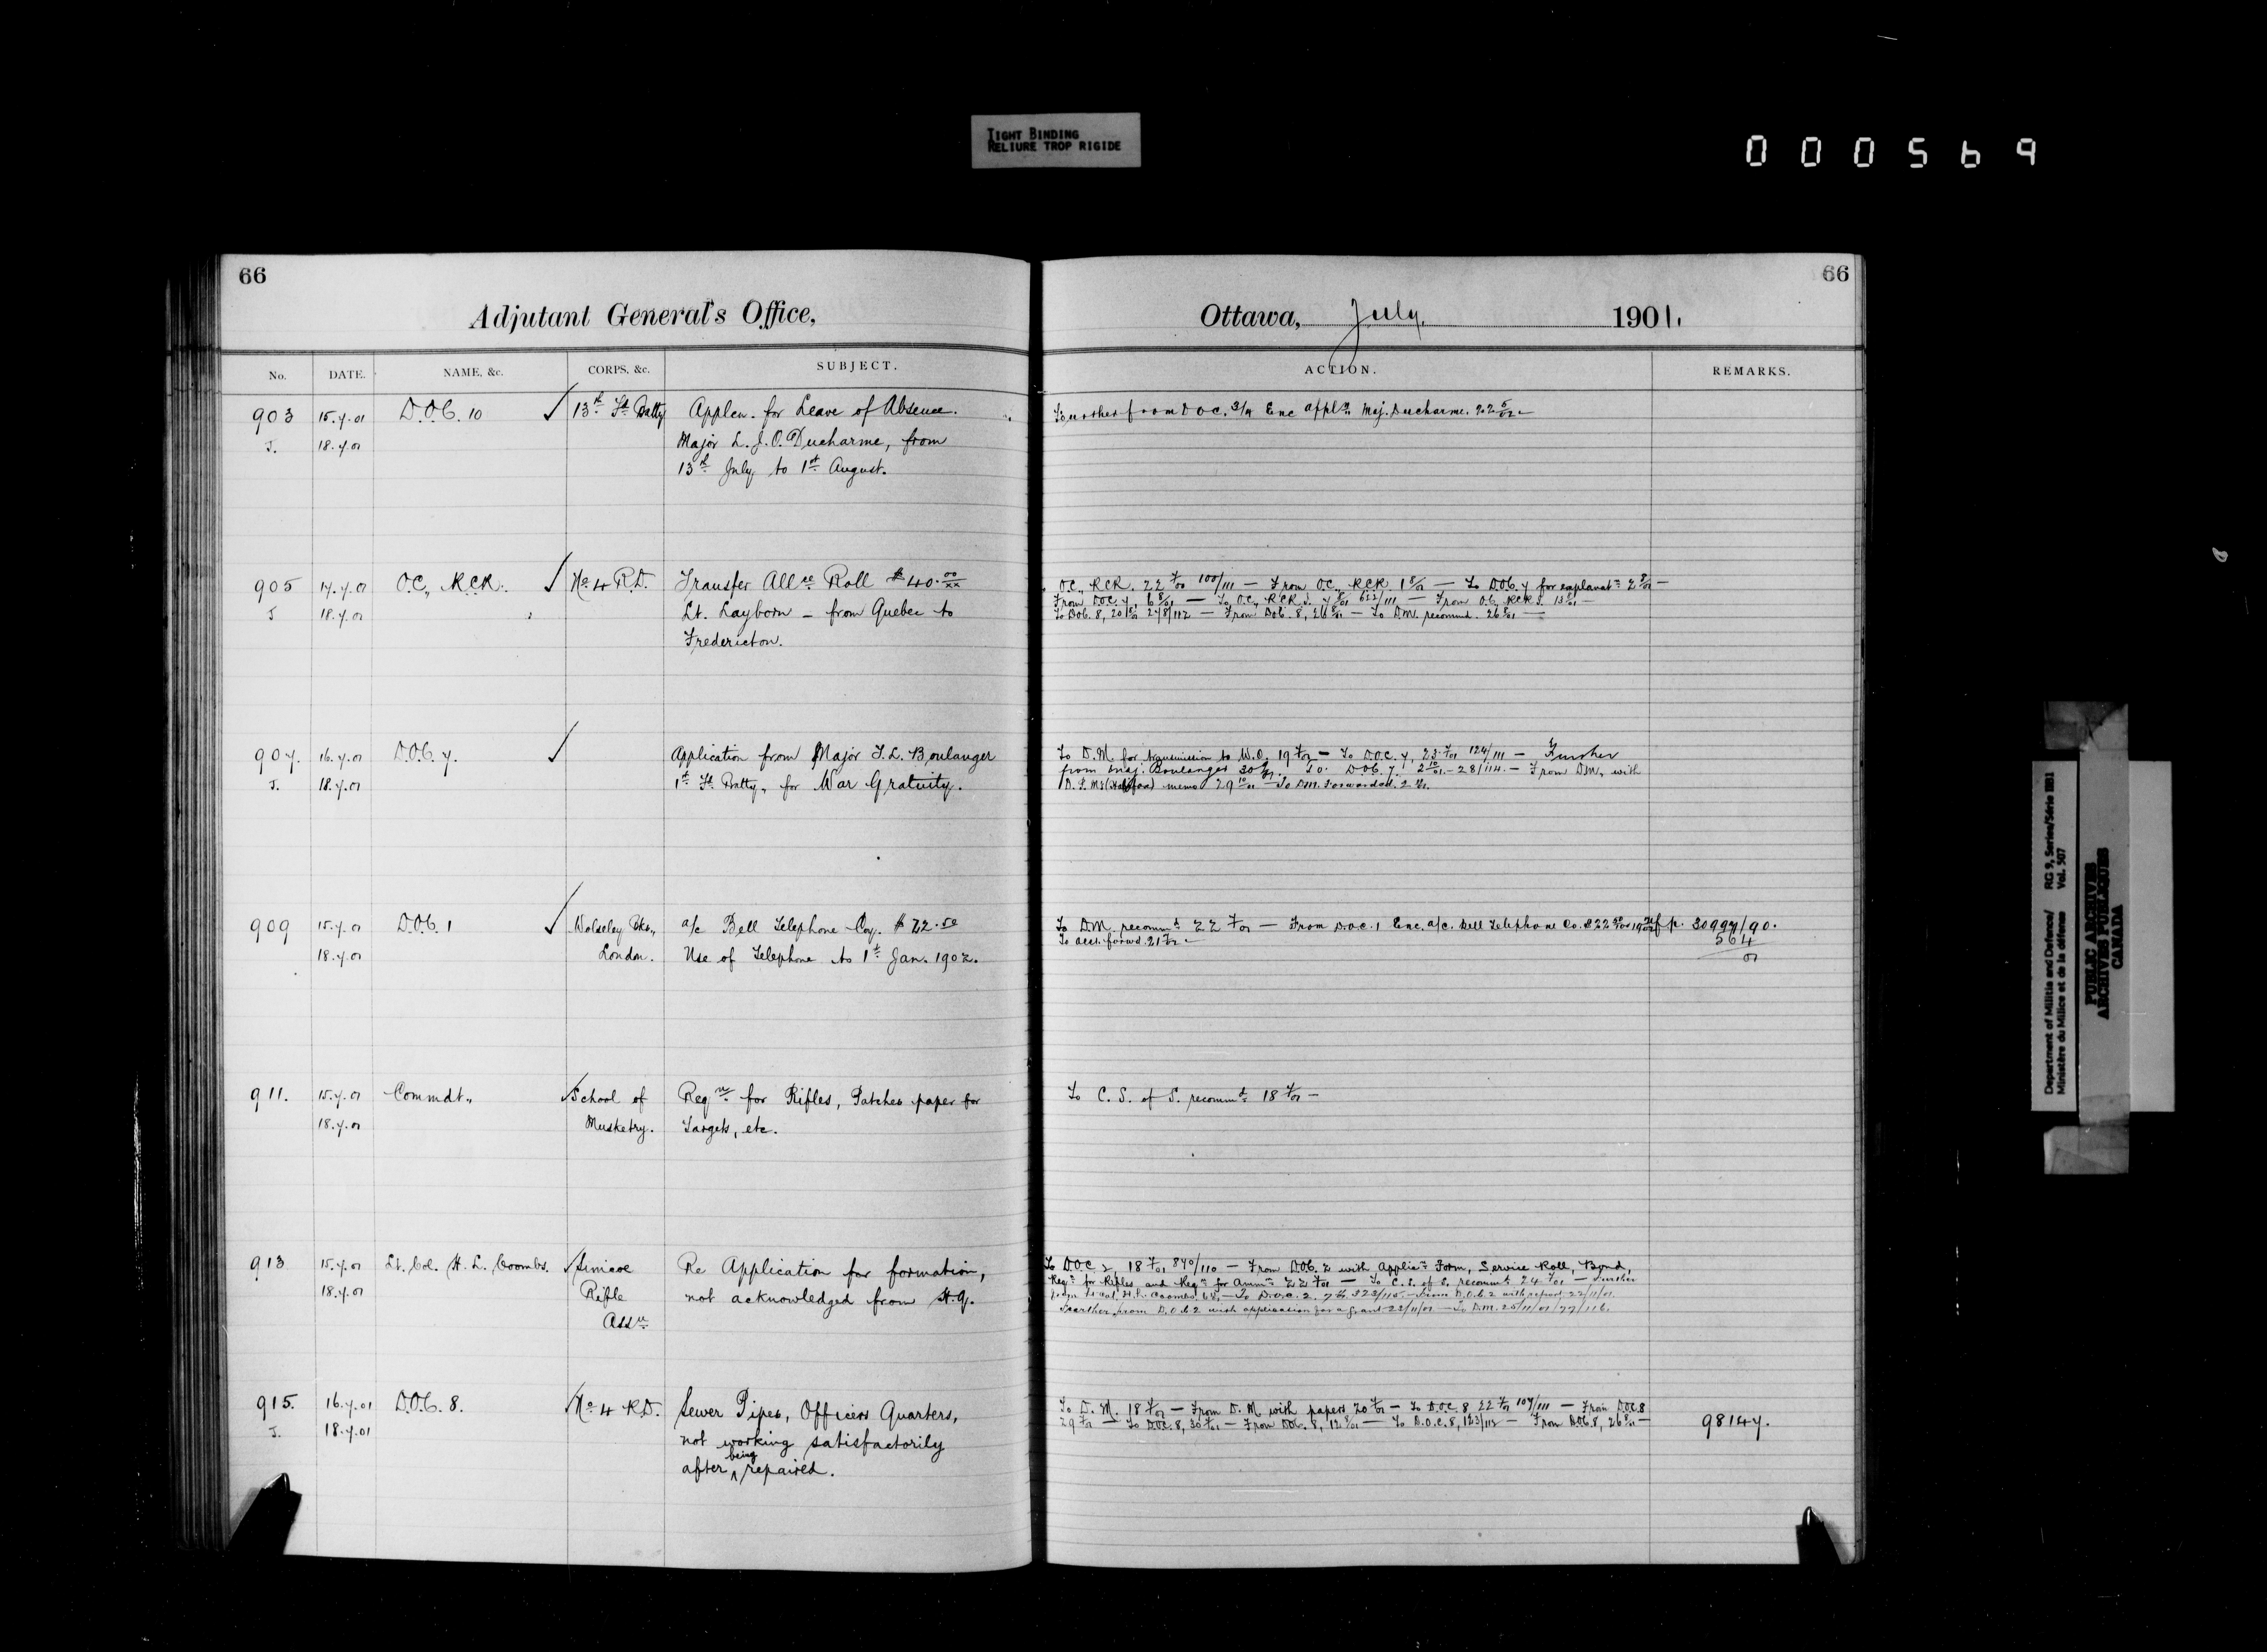 TIGHT BINDING
RELIURE TROP RIGIDE
000569
66
Adjutant General's Office,
No. DATE. NAME, &c. CORPS, &c. SUBJECT.
903 15.7.01 D.O.C. 10 ✓ 13th Fd. Batty Applcn. for Leave of Absence.
J. 18.7.01 Major L. J. O. Ducharme, from
13th July, to 1st August.
905 17.7.01 O.C., R.C.R. ✓ No 4 R.D. Transfer Allce Roll $40.00/xx
J 18.7.01 Lt. Layborn – from Quebec to
Fredericton.
907. 16.7.01 D.O.C. 7. ✓ Application from Major J. L. Boulanger
J. 18.7.01 1st Fd. Batty, for War Gratuity.
909 15.7.01 D.O.C. 1 ✓ Wolseley Bks., a/c Bell Telephone Coy. $22.50
18.7.01 London. Use of Telephone to 1st Jan. 1902.
911. 15.7.01 Commdt., ✓ School of Reqn for Rifles, Patches paper for
18.7.01 Musketry. Targets, etc.
913 15.7.01 Lt. Col. H. L. Coombs. ✓ Simcoe Re Application for formation,
18.7.01 Rifle not acknowledged from H.Q.
Assn
915. 16.7.01 D.O.C. 8. ✓ No 4 R.D. Sewer Pipes, Officers Quarters,
J. 18.7.01 not working satisfactorily
after being repaired.
66
Ottawa, July, 1901.
ACTION. REMARKS.
Further from D.O.C. Enc appln Maj. Ducharme.
O.C., R.C.R. 22 7/01 100/111 — From O.C., R.C.R. 1 8/01 — To D.O.C. 7 for explanatn 2 8/01 —
From D.O.C. 7, 6 8/01 — To O.C., R.C.R. 7 8/01 622/111 — From O.C. R.C.R. 13 8/01 —
To D.O.C. 8, 20 8/01 278/112 — From D.O.C. 8, 26 8/01 — To D.M. recommd. 26 8/01 —
To D.M. for transmission to W.O. 19 7/01 — To D.O.C. 7, 23 7/01 124/111 — Further
from Maj. Boulanger 30 9/01. To D.O.C. 7. 2 10/01 – 28/114. — From D.M., with
memo 29 10/01 — To D.M. Forwarded.
To D.M. recommd 22 7/01 — From D.O.C. 1 Enc. a/c. Bell Telephone Co. $22 50 p. 30997/90.
To acct. forwd. 564
01
To C. S. of S. recommd 18 7/01 —
To D.O.C. 2 18 7/01 840/110 — From D.O.C. 2 with Applicn Form, Service Roll, Bond,
Reqn for Rifles and Reqn for Ammn 22 7/01 — To C. S. of S. recommd 24 7/01 — Further
from Lt Col. H. L. Coombs — To D.O.C. 2. 323/115. — From D.O.C. 2 with report 22/11/01.
Further from D.O.C. 2 with application for a grant 23/11/01 — To D.M. 25/11/01/77/116.
To D. M. 18 7/01 — From D. M. with papers 20 7/01 — To D.O.C. 8 22 7/01 107/111 — From D.O.C. 8
29 7/01 — To D.O.C. 8, 30 7/01 — From D.O.C. 8, 12 8/01 — To D.O.C. 8, 123/112 — From D.O.C. 8, 26 8/01 — 98147.
Department of Militia and Defence/ RG 9, Series/Série IIB1
Ministère du Milice et de la défense Vol. 507
PUBLIC ARCHIVES
ARCHIVES PUBLIQUES
CANADA